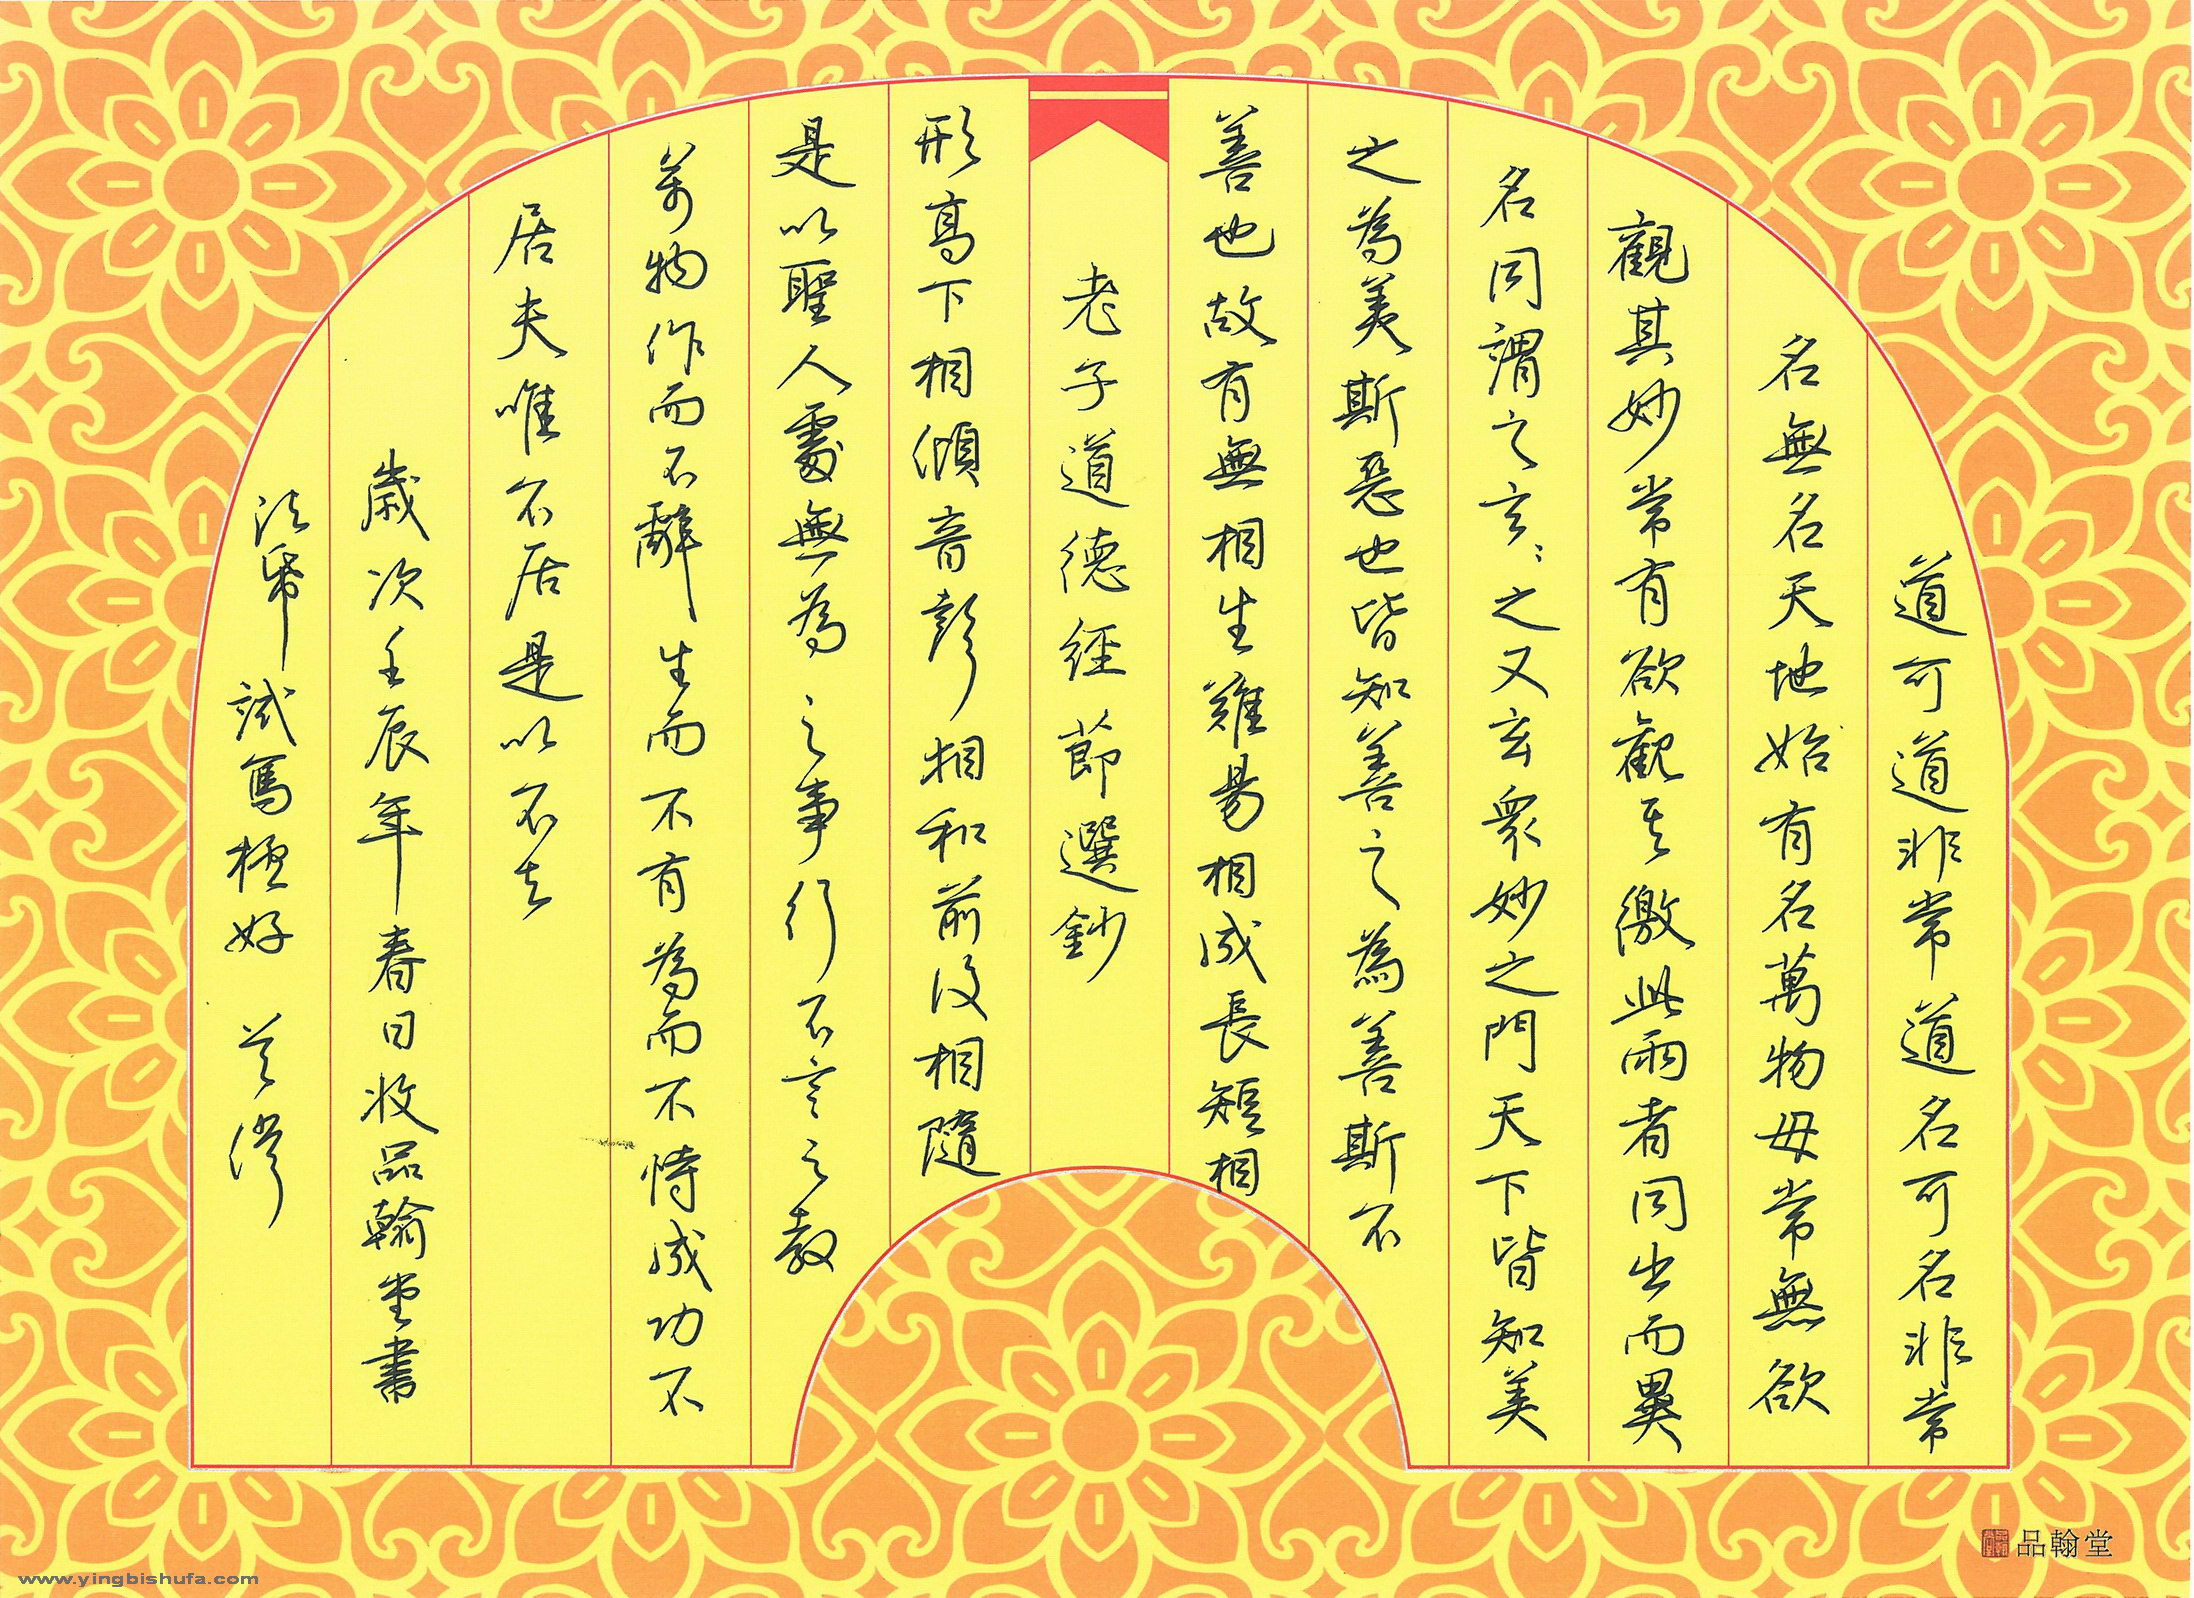 道可道非常道名可名非常
名無名天地始有名萬物母常無欲
觀其妙常有欲觀其徼此兩者同出而異
名同謂之玄〻之又玄眾妙之門天下皆知美
之為美斯惡也皆知善之為善斯不
善也故有無相生難易相成長短相
老子道德經節選鈔
形高下相傾音聲相和前後相隨
是以聖人處無為之事行不言之教
萬物作而不辭生而不有為而不恃成功不
居夫唯不居是以不去
歲次壬辰年春日收品翰堂書
法帋試寫極好
品翰堂
www.yingbishufa.com